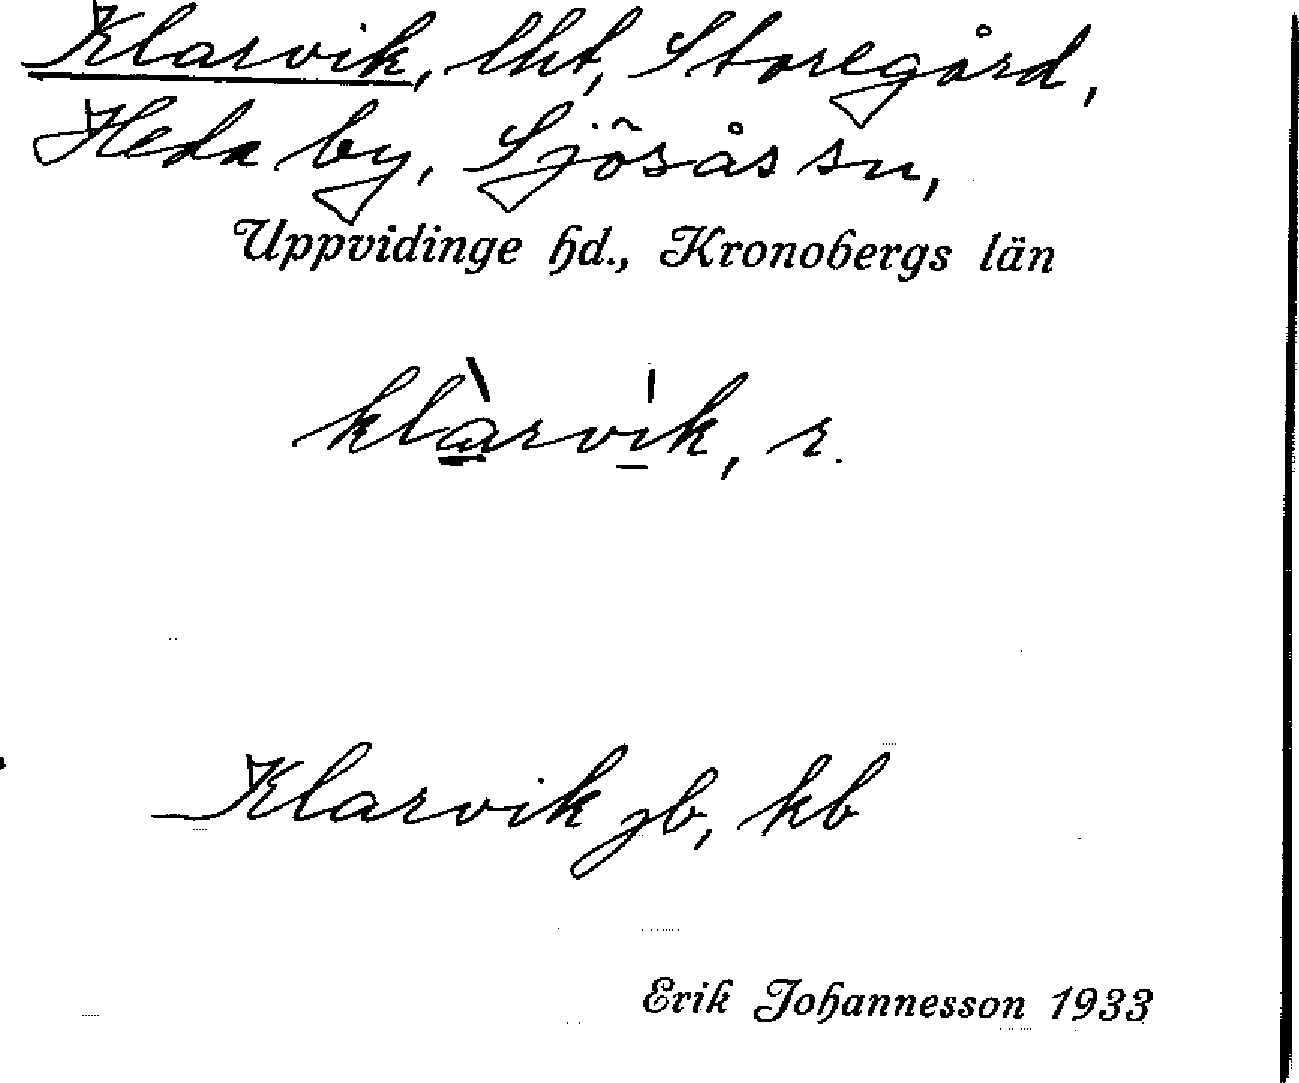 Klarvik, lht, Storegård,
Heda by, Sjösås sn,
Uppvidinge hd., Kronobergs län
klàrvik, r.
Klarvik jb, kb
Erik Johannesson 1933